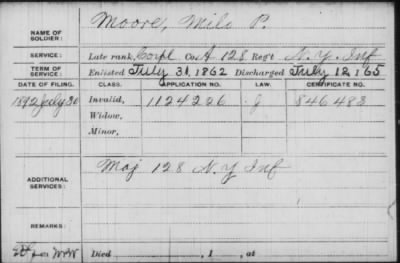 NAME OF SOLDIER: Moore, Milo P.
SERVICE: Late rank, Corpl Co. A. 128 Reg't N. Y. Inf
TERM OF SERVICE: Enlisted July 31, 1862 Discharged July 12, 1865
DATE OF FILING. CLASS. APPLICATION NO. LAW. CERTIFICATE NO.
1892 July 30 Invalid, 1124226 J 846483
Widow,
Minor,
ADDITIONAL SERVICES: Maj 128 N. Y Inf
REMARKS:
Died , 1 , at